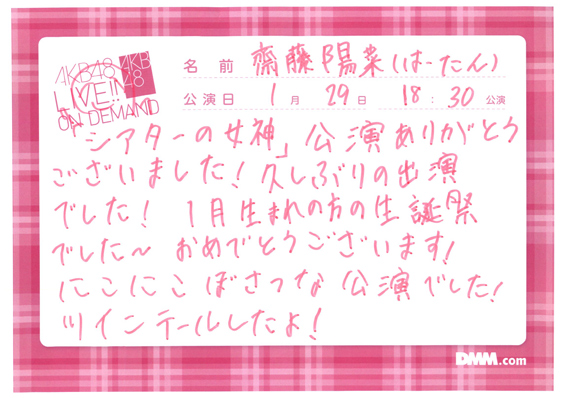 AKB48
LIVE!! ON DEMAND
AKB48
名前 齋藤陽菜(はーたん)
公演日 1月 29日 18:30 公演
「シアターの女神」公演ありがとう
ございました!久しぶりの出演
でした! 1月生まれの方の生誕祭
でした〜 おめでとうございます!
にこにこぼさつな公演でした!
ツインテールしたよ!
DMM.com